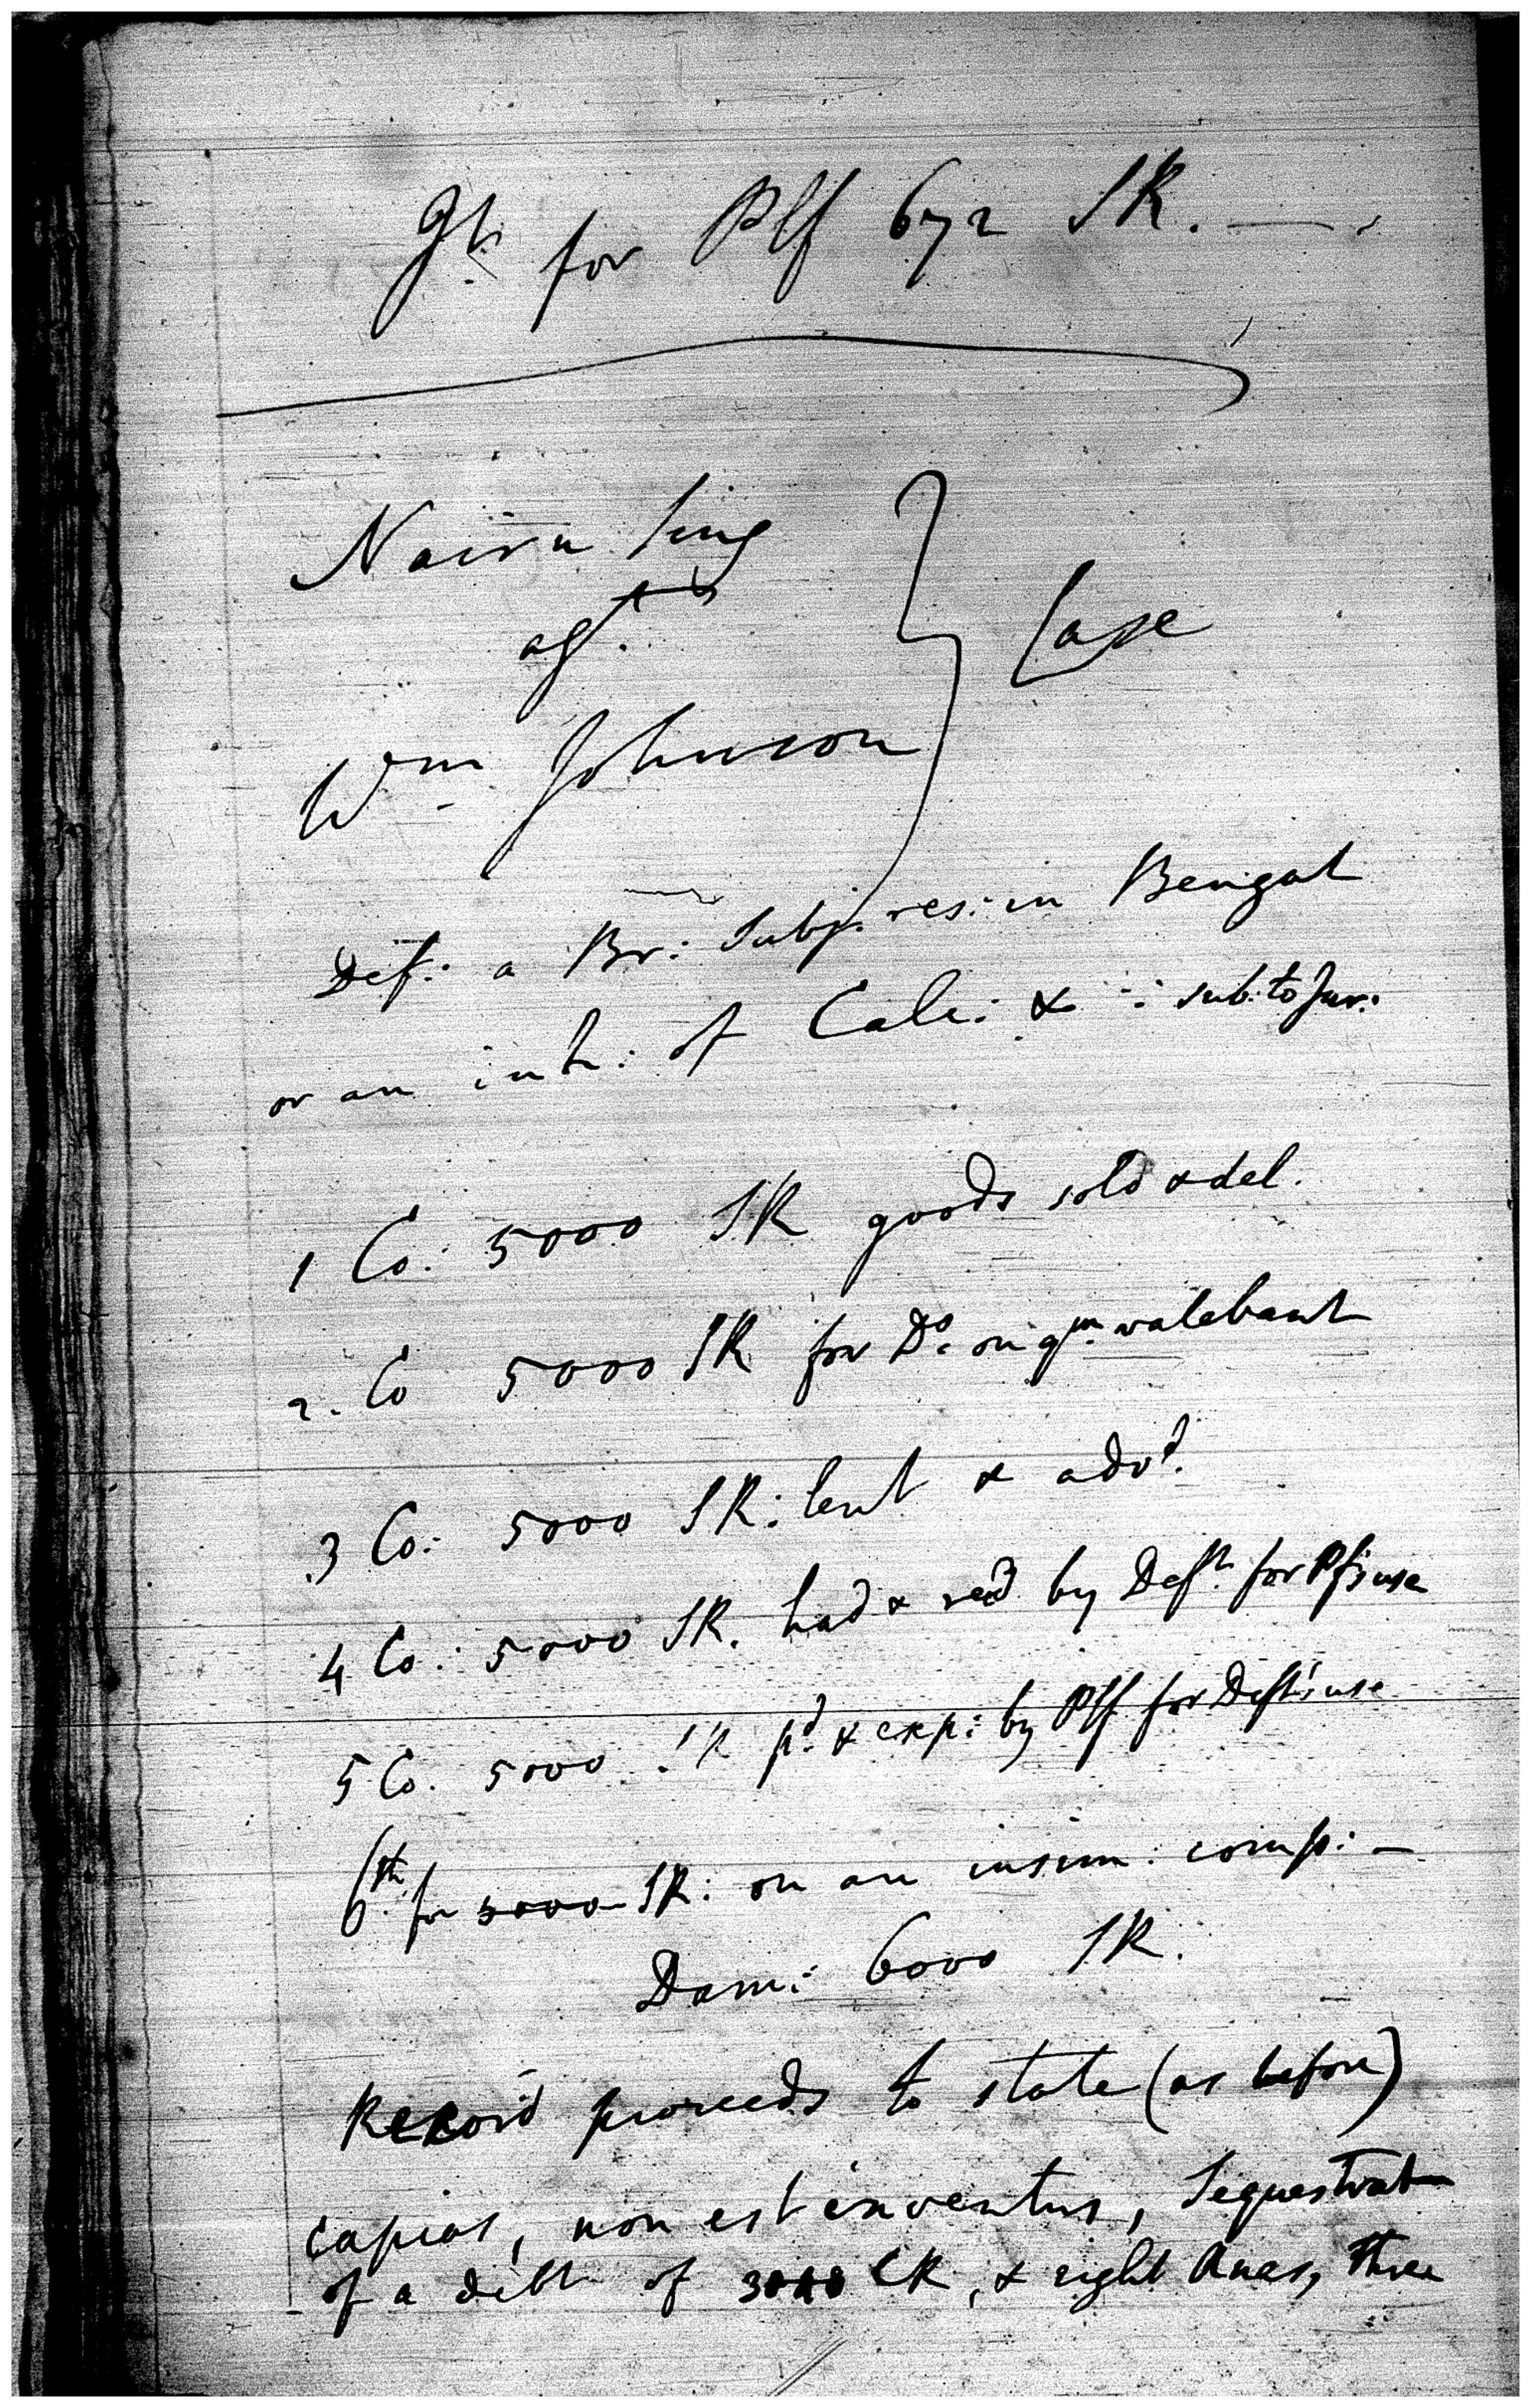 Jt. for Plf 672 SR. —
Nairn Sing
agt.
Wm Johnson
Case
Def: a Br: Subj. res: in Bengal
or an inh: of Calc: & : sub: to Jur:
1 Co: 5000 SR goods sold & del.
2. Co 5000 SR for Do. on qm. valebant
3 Co: 5000 SR: lent & advd.
4 Co: 5000 SR. had & recd by Deft. for Pf's use
5 Co. 5000 SR pd. & exp: by Plf for Deft's use
6th. for 5000 SR: on an insim: comp: —
Dam: 6000 SR.
Record proceeds to state (as before)
capias, non est inventus, Sequestrat
of a debt of CR, & eight Anas, three